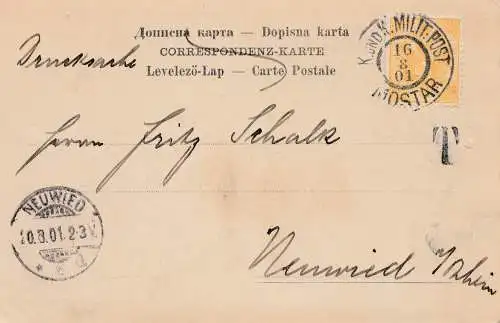 Дописна карта — Dopisna karta
CORRESPONDENZ-KARTE
Levelező-Lap — Carte Postale
Drucksache
K. UND K. MILIT. POST
16
8
01
MOSTAR
T
Herrn Fritz Schalk
NEUWIED
20.8.01.2-3N.
* d
Neuwied a/Rhein